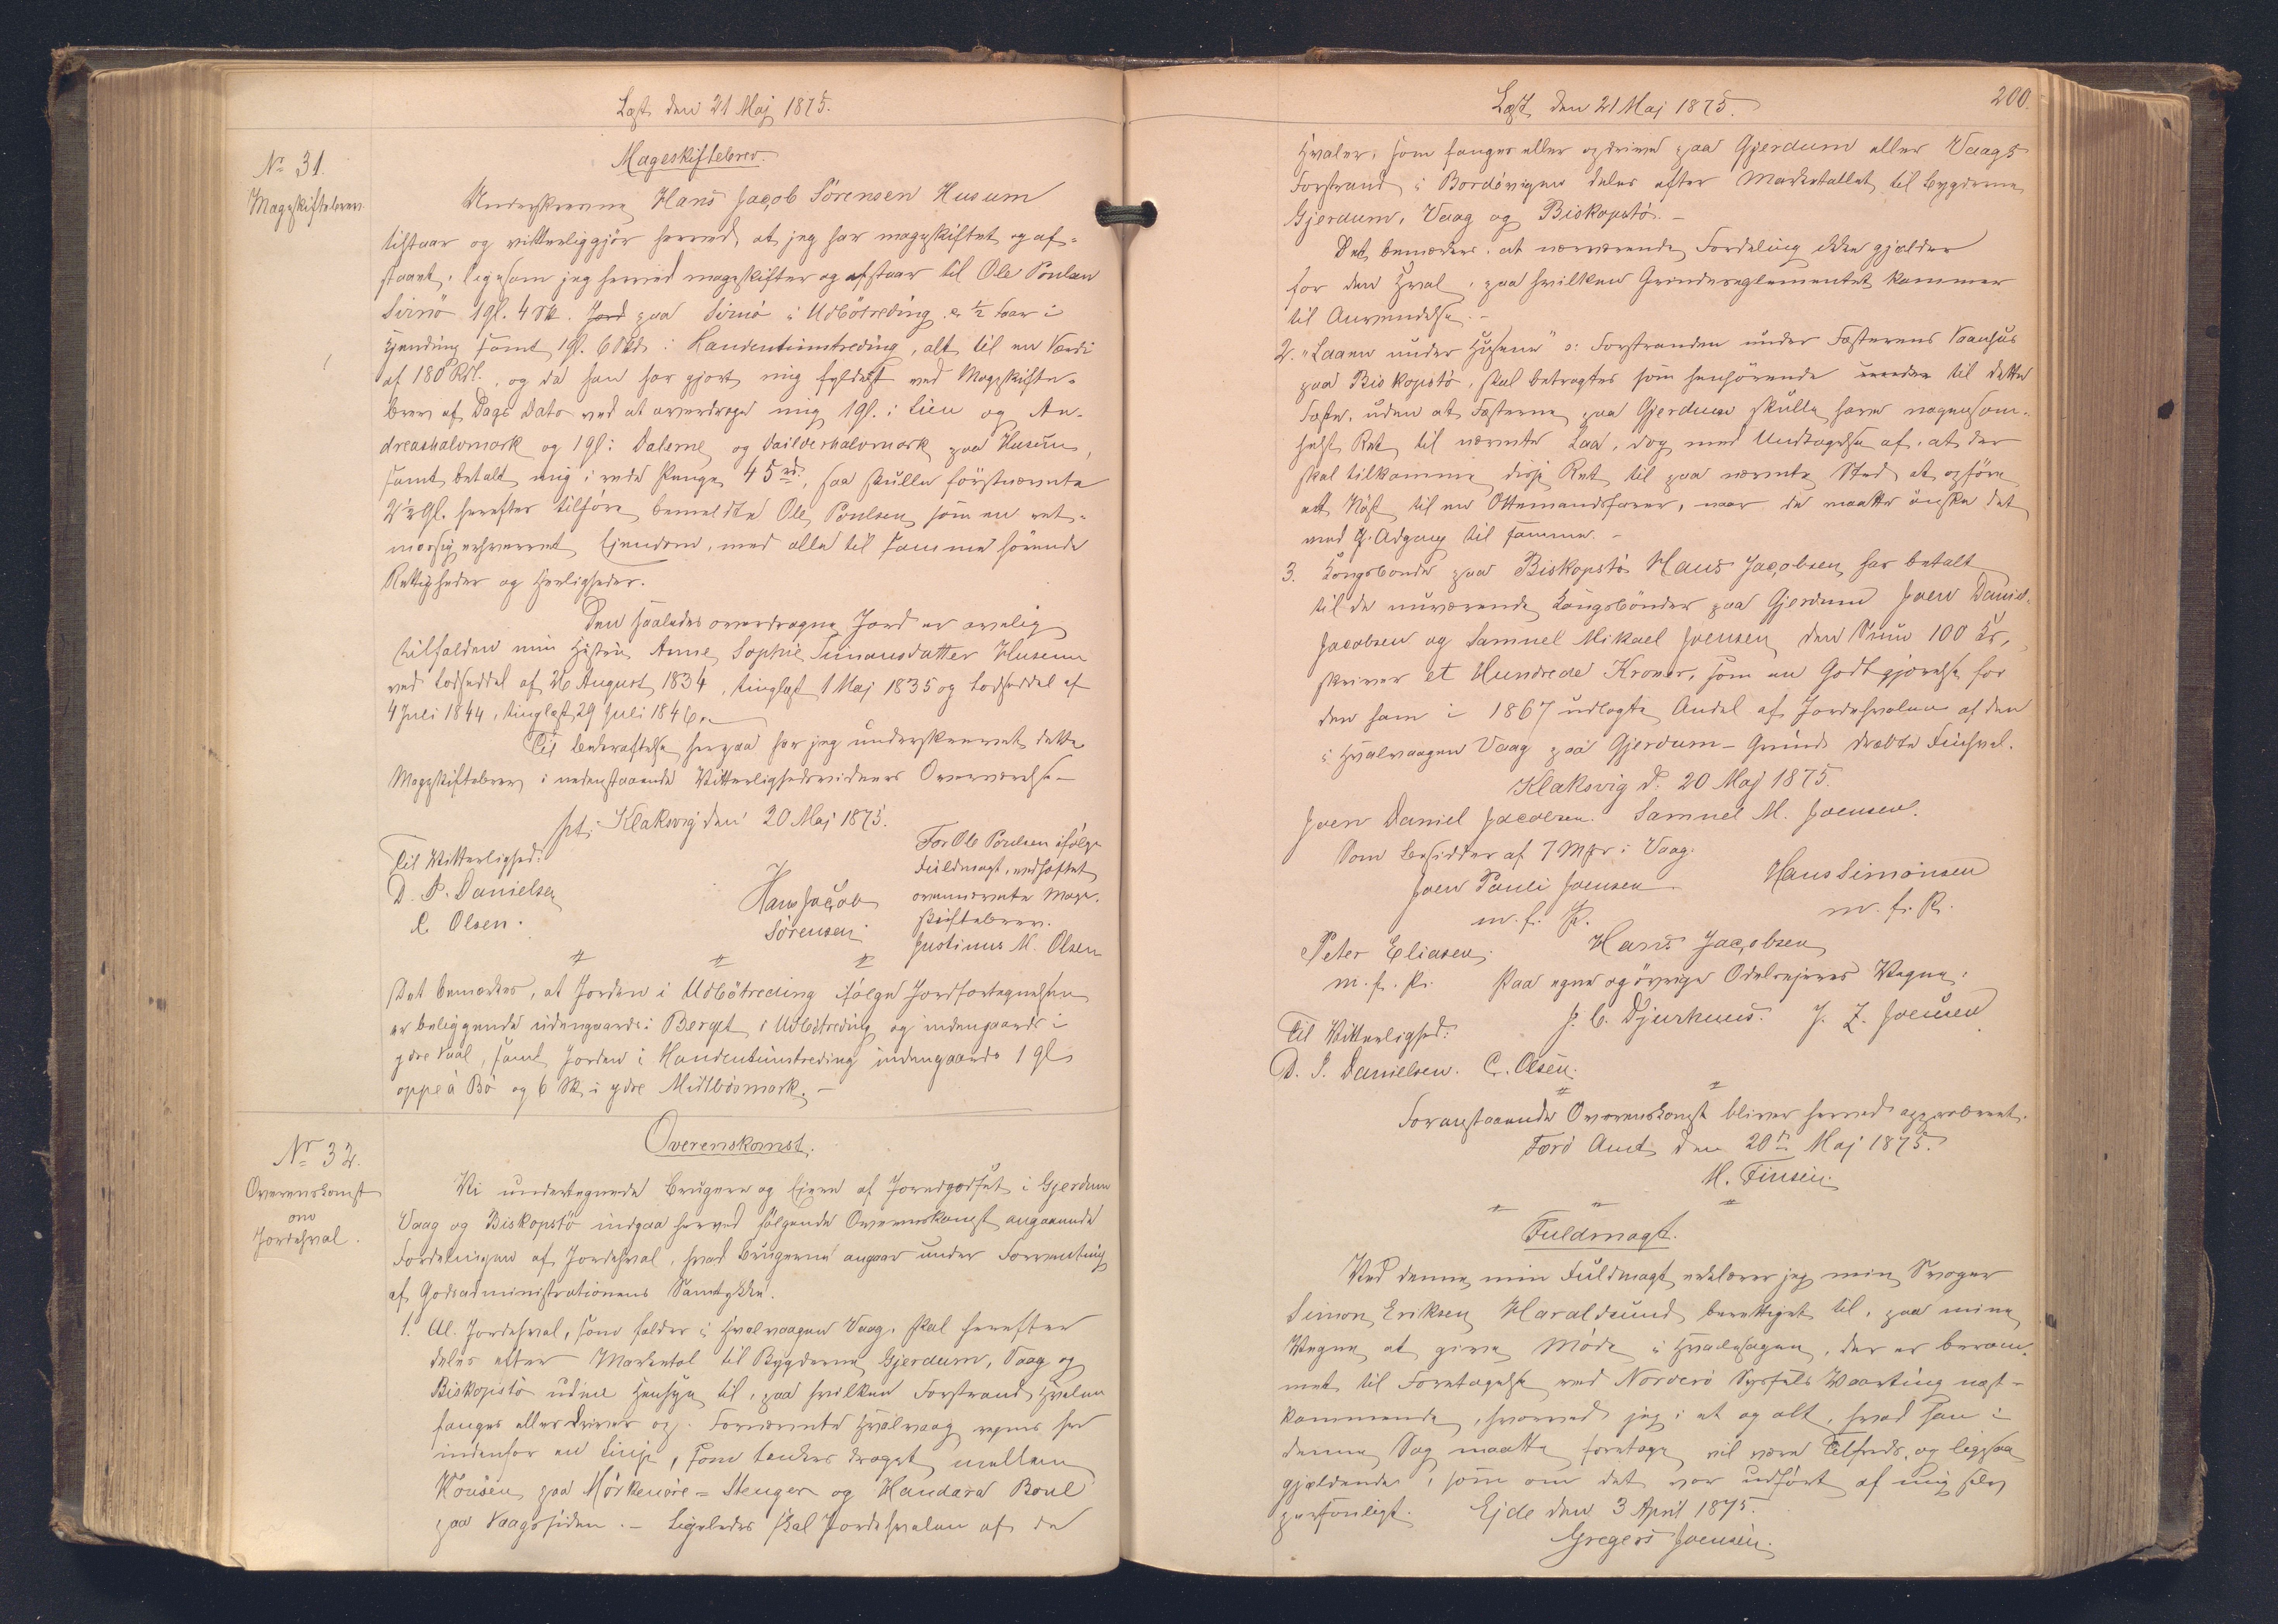 Læst den 21 Maj 1875.
No 31.
Mageskiftebrev
Mageskiftebrev.
Underskrevne Hans Jacob Sörensen Husum
tilstaar og vitterliggjör herved, at jeg har mageskiftet og af-
staaet, ligesom jeg herved mageskifter og afstaar til Ole Poulsen
Svinö 1 Gl. 4 Sk. Jord paa Svinö i Udbötreding, a ½ i
samt 1 Gl. 6 Sk. i Handentúnstreding, alt til en Værdi
af 180 Rdl., og da han har gjort mig fyldest ved Mageskifte-
brev af Dags Dato ved at overdrage mig 1 Gl. i Lien og An-
dreashalvmark og 1 Gl. i Dalerne og halvmark paa Husum,
samt betalt mig i rede Penge 45 rd., saa skulle förstnævnte
2½ Gl. herefter tilhöre bemeldte Ole Poulsen som en ret-
mæssig erhvervet Ejendom, med alle til samme hörende
Rettigheder og Herligheder.
Den saaledes overdragne Jord er arvelig
tilfalden min Hustru Anne Sophie Simonsdatter Husum
ved Lodseddel af 26 August 1834, tinglæst 1 Maj 1835 og Lodseddel af
4 Juli 1844, tinglæst 29 Juli 1846.
Til Bekræftelse herpaa har jeg underskrevet dette
Mageskiftebrev i nedenstaaende Vitterlighedsvidners Overværelse.
pt. Klaksvig den 20 Maj 1875.
Til Vitterlighed:
D. P. Danielsen
C. Olsen.
Hans Jacob
Sörensen
For Ole Poulsen ifölge
Fuldmagt, vedhæftet
ovennævnte Mage-
skiftebrev.
Justinus M. Olsen
Det bemærkes, at Jorden i Udbötreding ifölge Jordfortegnelsen
er beliggende udengaards i Berget i Udbötreding og indengaards i
ydre Vaal, samt Jorden i Handentúnstreding indengaards 1 Gl.
oppe á Bö og 6 Sk. i ydre Midtbömark.
Nr 32.
Overenskomst
om
Jordehval.
Overenskomst.
Vi undertegnede Brugere og Ejere af Jordegodset i Gjerdum
Vaag og Biskopstö indgaa herved fölgende Overenskomst angaaende
Fordelingen af Jordehval, hvad Brugerne angaar under Forventning
af Godsadministrationens Samtykke.
1. Al Jordehval, som falder i Hvalvaagen Vaag, skal herefter
deles efter Marketal til Bygderne Gjerdum, Vaag og
Biskopstö uden Hensyn til, paa hvilken Forstrand Hvalen
fanges eller driver op. Fornævnte Hvalvaag regnes her
indenfor en Linje, som tænkes draget mellem
paa Mörkenöre-Stenger og Handara Boul
paa Vaagssiden. - Ligeledes skal Jordehvalen af de
Læst den 21 Maj 1875.
200.
Hvaler, som fanges eller opdrive paa Gjerdum eller Vaags
Forstrand i Bordövigen deles efter Marketallet til Bygderne
Gjerdum, Vaag og Biskopstö. -
Det bemærkes, at nærværende Fordeling ikke gjælder
for den Hval, paa hvilken Grindereglementet kommer
til Anvendelse. -
2. "Laaen under Husene" o: Forstranden under Fæsterens Vaanhus
paa Biskopstö, skal betragtes som henhörende til dette
Fæste, uden at Fæsterne paa Gjerdum skulle have nogensom-
helst Ret til nævnte Laa, dog med Undtagelse af, at der
skal tilkomme disse Ret til paa nævnte Sted at opföre
et Nöst til en Ottemandsfarer, naar de maatte önske det
med Adgang til samme. -
3. Kongsbonde paa Biskopstö Hans Jacobsen har betalt
til de nuværende Kongsbönder paa Gjerdum Joen Daniel
Jacobsen og Samuel Mikael Joensen den Sum 100 Kr.,
skriver et Hundrede Kroner, som en Godtgjörelse for
den ham i 1867 udlagte Andel af Jordehvalen af den
i Hvalvaagen Vaag paa Gjerdum-Grund dræbte Finhval.
Klaksvig d. 20 Maj 1875.
Joen Daniel Jacobsen. Samuel M. Joensen.
Som Besidder af 7 Mkr i Vaag.
Joen Pauli Joensen
m. f. P.
Hans Simonsen
m. f. P.
Peter Eliasen
m. f. P.
Hans Jacobsen
Paa egne og övrige Odelsejeres Vegne.
J. C. Djurhuus. J. Z. Joensen
Til Vitterlighed:
D. P. Danielsen. C. Olsen.
Foranstaaende Overenskomst bliver herved approberet.
Færö Amt den 20de Maj 1875.
H. Finsen.
Fuldmagt.
Ved denne min Fuldmagt erklærer jeg min Svoger
Simon Eriksen Haraldsund berettiget til, paa mine
Vegne at give Möde i Hvalsagen, der er beram-
met til Foretagelse ved Norderö Syssels Vaarting næst-
kommende, hvorved jeg i et og alt, hvad han i
denne Sag maatte foretage vil være tilfreds, og ligesaa
gjældende, som om det var udfört af mig selv
personligt. Ejde den 3 April 1875.
Gregers Joensen.